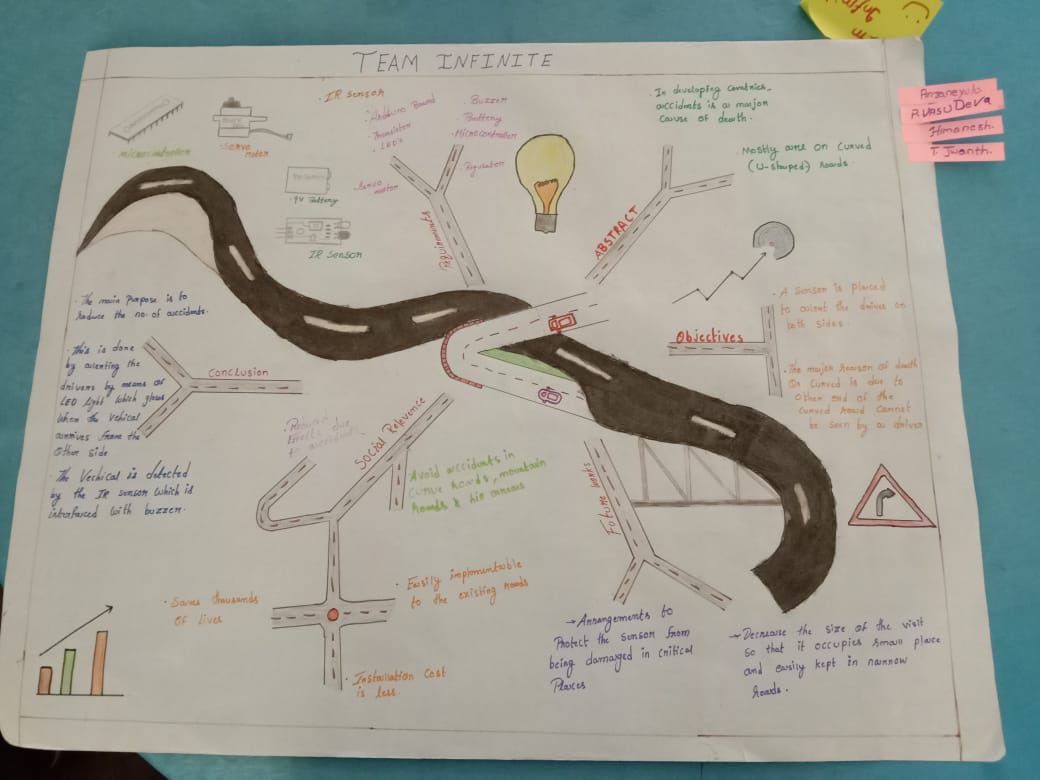 TEAM INFINITE
Anjaneyulu
P. VASU DEVA
Himanesh.
T. Jwanth.
microcontroller
Servo motor
9V Battery
IR Sensor
· IR Sensor
· Arduino Board
· Transistor
· LED's
· Servo motor
· Buzzer
· Battery
· Microcontroller
Regulator
Requirements
ABSTRACT
· In developing countries,
accidents is a major
cause of death.
· Mostly are on curved
(U-shaped) roads.
Objectives
· A sensor is placed
to avert the driver on
both sides
· The major reason of death
on curved is due to
other end of the
curved road cannot
be seen by a driver
· The main Purpose is to
reduce the no. of accidents.
· This is done
by averting the
drivers by means of
LED light which glows
when the vehical
arrives from the
other side
· The Vechical is detected
by the IR sensor which is
interfaced with buzzer.
Conclusion
Social Relevence
effects due
to accidents
Avoid accidents in
curve roads, mountain
roads &
· Saves thousands
of lives
· Easily implementable
to the existing roads
· Installation Cost
is less.
Future works
→ Arrangements to
Protect the sensor from
being damarged in critical
Places
→ Decrease the size of the visit
so that it occupies small place
and easily kept in narrow
roads.